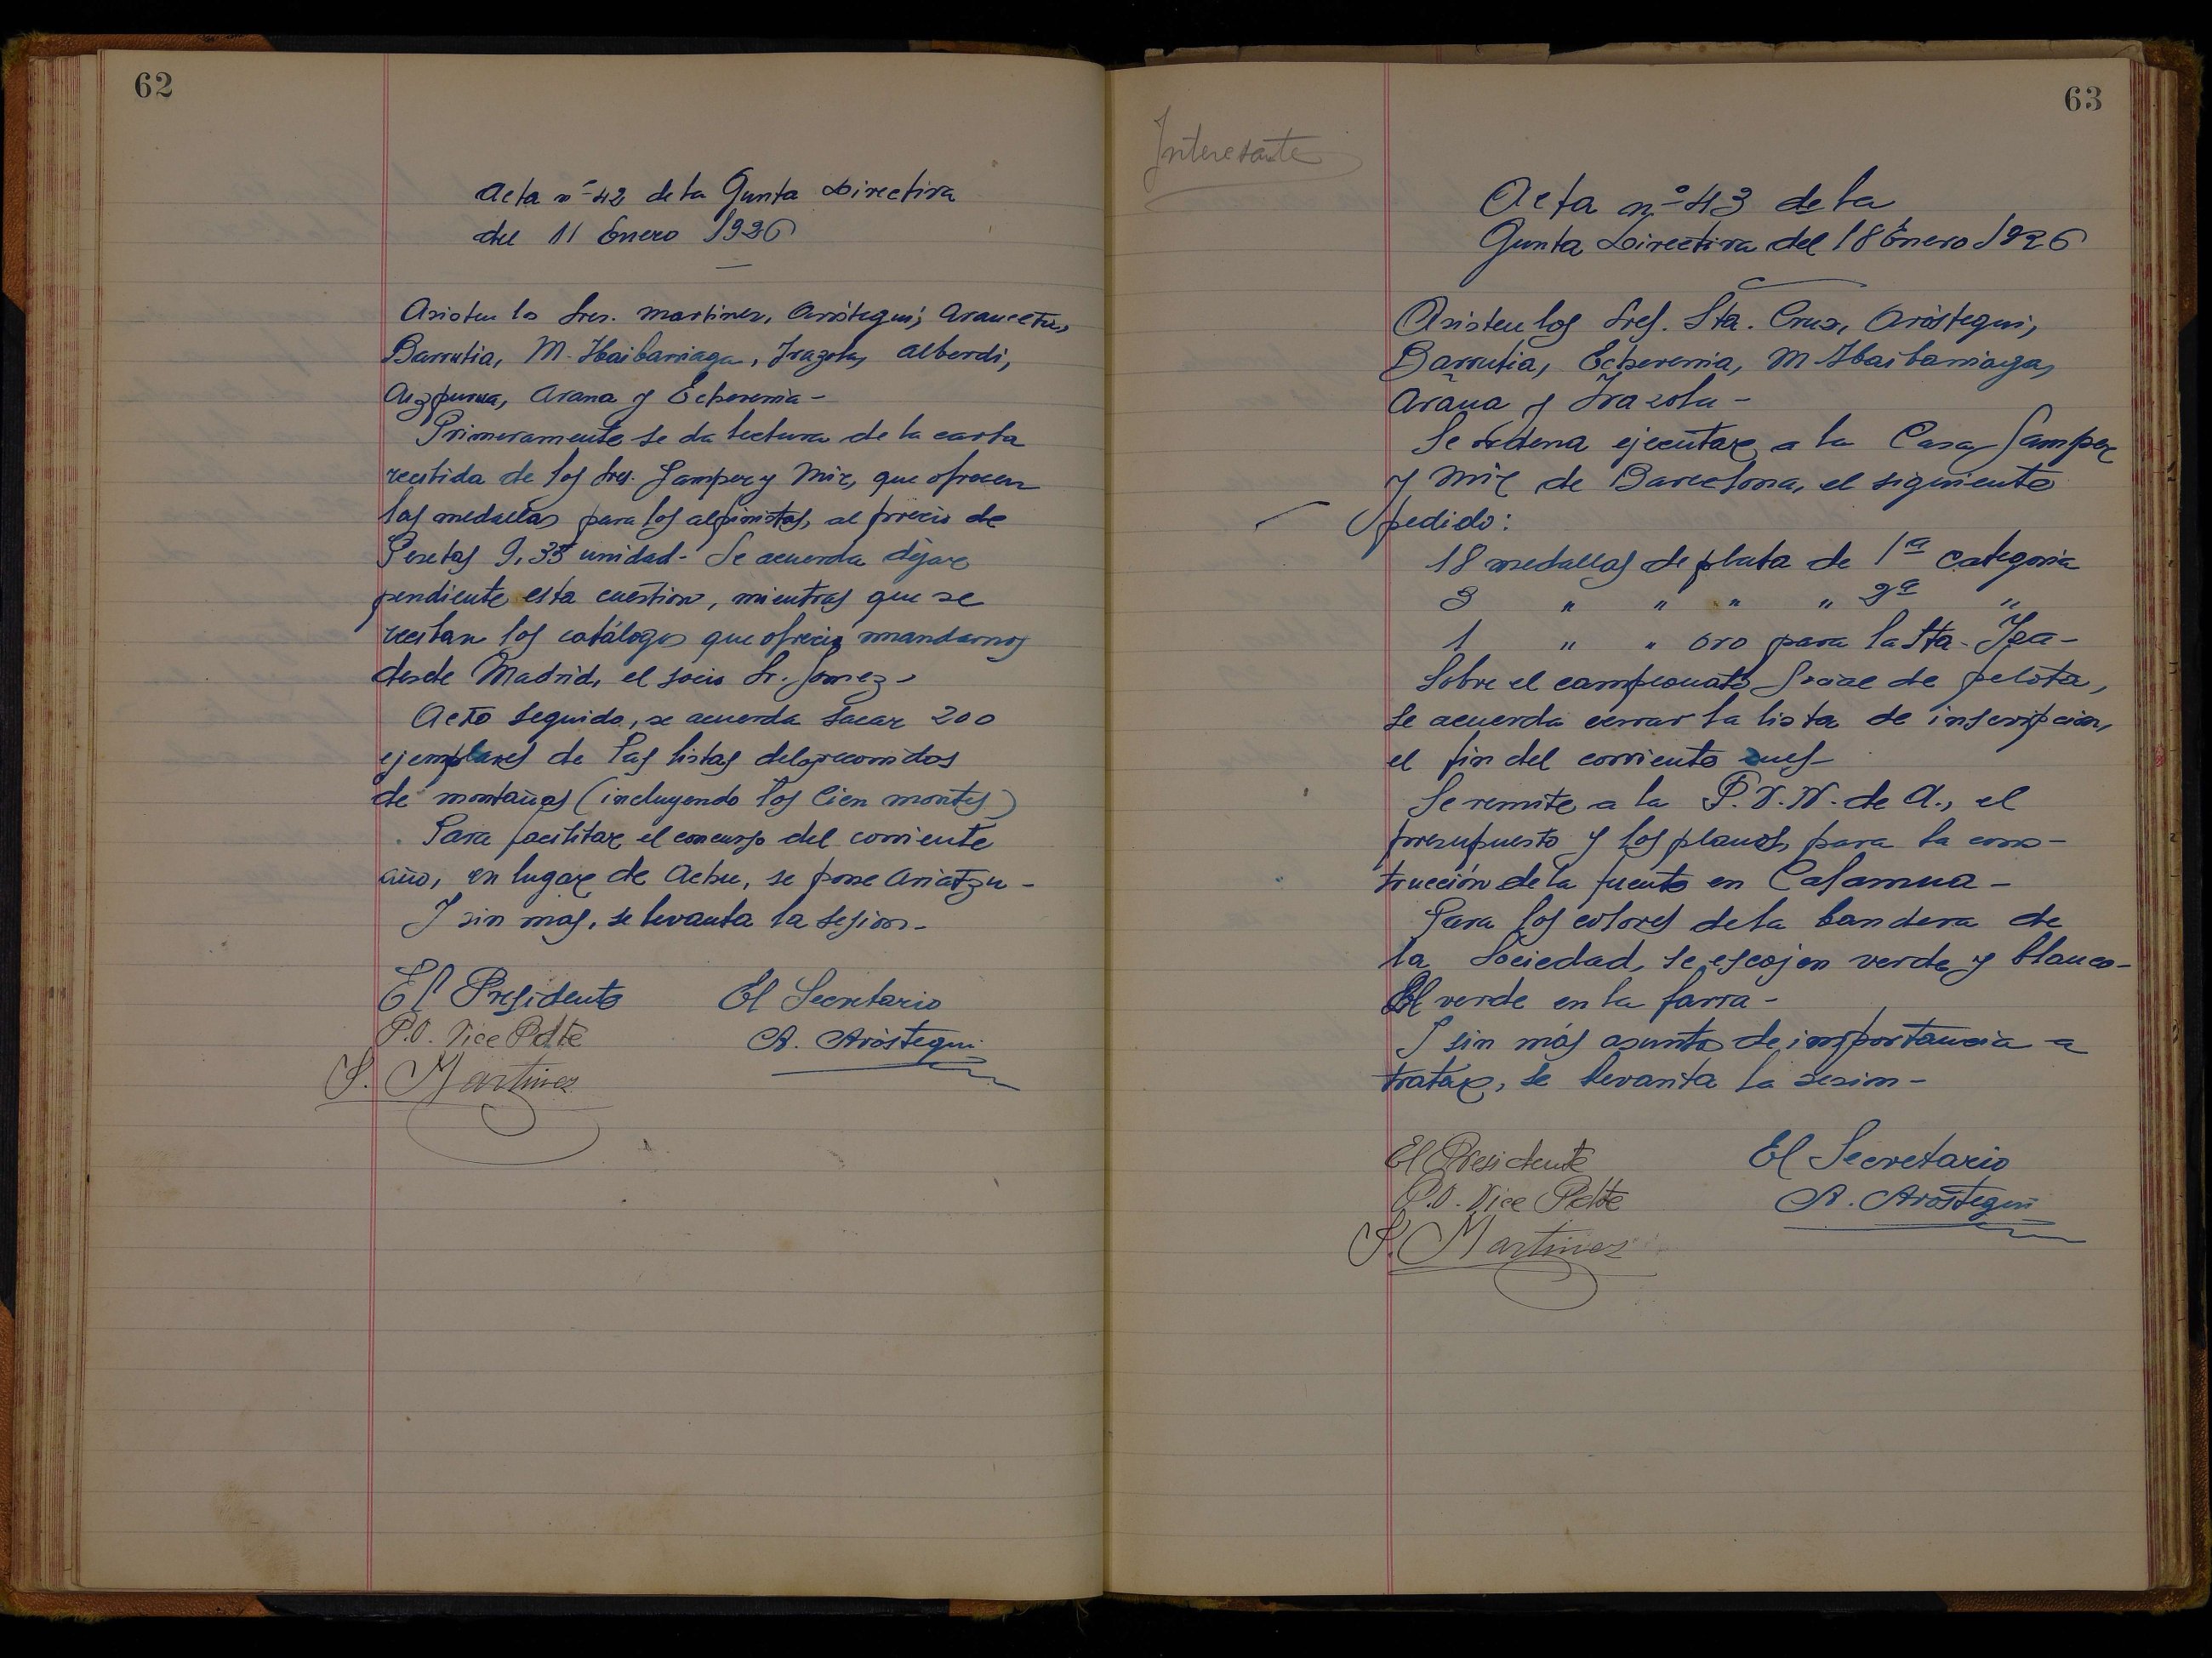 62
Acta nº 42 de la Junta Directiva
del 11 Enero 1926
Asisten lo Sres. Martinez, Aróstegui, Arancetu,
Barrutia, M. Ibaibarriaga, Irazola, Alberdi,
Aizpurua, Arana y Echeverria -
Primeramente se da lectura de la carta
recibida de los Sres. Samper y Mir, que ofrecen
las medallas para los alpinistas, al precio de
Pesetas 9,35 unidad - Se acuerda dejar
pendiente esta cuestion, mientras que se
reciban los catálogos que ofreció mandarnos
desde Madrid, el socio Sr. Gomez -
Acto seguido, se acuerda sacar 200
ejemplares de las listas de los recorridos
de montañas (incluyendo los Cien montes)
Para facilitar el concurso del corriente
año, en lugar de Achu, se pone Aviatzu -
Y sin mas, se levanta la sesion -
El Presidente El Secretario
P.O. Vice Pdte A. Aróstegui
S. Martinez
63
Interesante
Acta nº 43 de la
Junta Directiva del 18 Enero 1926
Asisten los Sres. Sta. Cruz, Aróstegui,
Barrutia, Echeverria, M. Ibaibarriaga,
Arana y Irazola -
Se ordena ejecutar a la Casa Samper
y Mir de Barcelona, el siguiente
pedido:
18 medallas de plata de 1ª categoria
3 " " " " 2ª "
1 " " oro para la Sta.
Sobre el campeonato Social de pelota,
se acuerda cerrar la lista de inscripcion,
el fin del corriente mes -
Se remite a la F.V.N. de A., el
presupuesto y los planos, para la cons-
trucción de la fuente en Calamua -
Para los colores de la bandera de
la Sociedad, se escojen verde y blanco -
El verde en la farra -
Y sin más asunto de importancia a
tratar, se levanta la sesion -
El Presidente El Secretario
P.O. Vice Pdte A. Aróstegui
S. Martinez